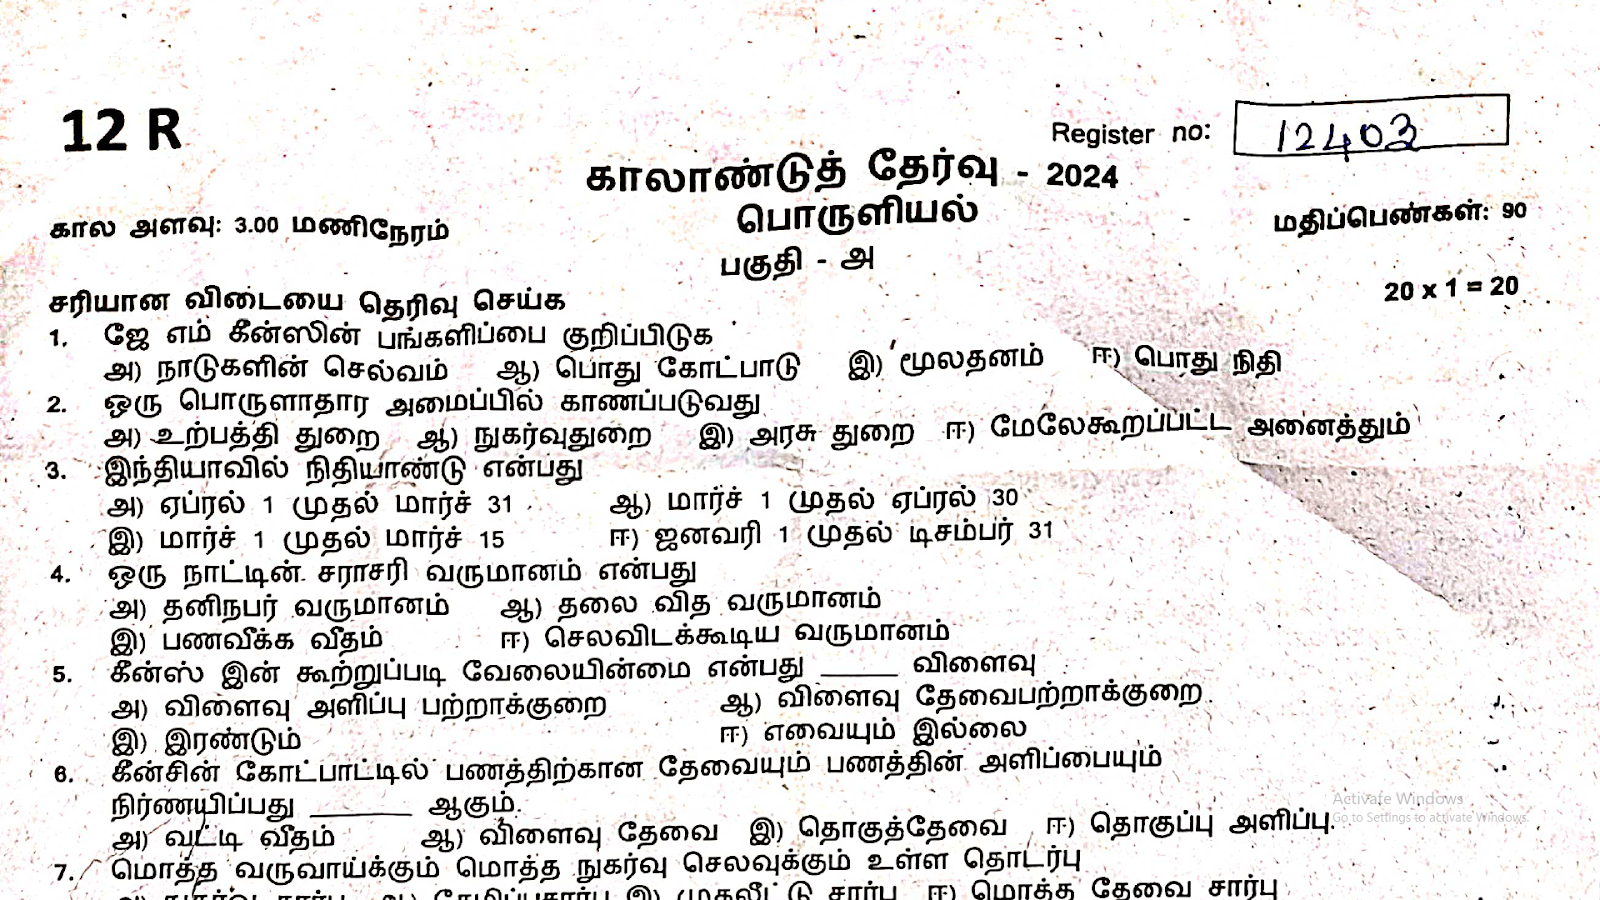 12 R
Register no: 12403
காலாண்டுத் தேர்வு - 2024
கால அளவு: 3.00 மணிநேரம்
பொருளியல்
மதிப்பெண்கள்: 90
பகுதி - அ
சரியான விடையை தெரிவு செய்க
20 x 1 = 20
1. ஜே எம் கீன்ஸின் பங்களிப்பை குறிப்பிடுக
அ) நாடுகளின் செல்வம் ஆ) பொது கோட்பாடு இ) மூலதனம் ஈ) பொது நிதி
2. ஒரு பொருளாதார அமைப்பில் காணப்படுவது
அ) உற்பத்தி துறை ஆ) நுகர்வுதுறை இ) அரசு துறை ஈ) மேலேகூறப்பட்ட அனைத்தும்
3. இந்தியாவில் நிதியாண்டு என்பது
அ) ஏப்ரல் 1 முதல் மார்ச் 31 ஆ) மார்ச் 1 முதல் ஏப்ரல் 30
இ) மார்ச் 1 முதல் மார்ச் 15 ஈ) ஜனவரி 1 முதல் டிசம்பர் 31
4. ஒரு நாட்டின் சராசரி வருமானம் என்பது
அ) தனிநபர் வருமானம் ஆ) தலை வித வருமானம்
இ) பணவீக்க வீதம் ஈ) செலவிடக்கூடிய வருமானம்
5. கீன்ஸ் இன் கூற்றுப்படி வேலையின்மை என்பது _____ விளைவு
அ) விளைவு அளிப்பு பற்றாக்குறை ஆ) விளைவு தேவைபற்றாக்குறை
இ) இரண்டும் ஈ) எவையும் இல்லை
6. கீன்சின் கோட்பாட்டில் பணத்திற்கான தேவையும் பணத்தின் அளிப்பையும்
நிர்ணயிப்பது _______ ஆகும்.
அ) வட்டி வீதம் ஆ) விளைவு தேவை இ) தொகுத்தேவை ஈ) தொகுப்பு அளிப்பு.
7. மொத்த வருவாய்க்கும் மொத்த நுகர்வு செலவுக்கும் உள்ள தொடர்பு
அ) நுகர்வு சார்பு ஆ) சேமிப்புசார்பு இ) முதலீட்டு சார்பு ஈ) மொத்த தேவை சார்பு
Activate Windows
Go to Settings to activate Windows.